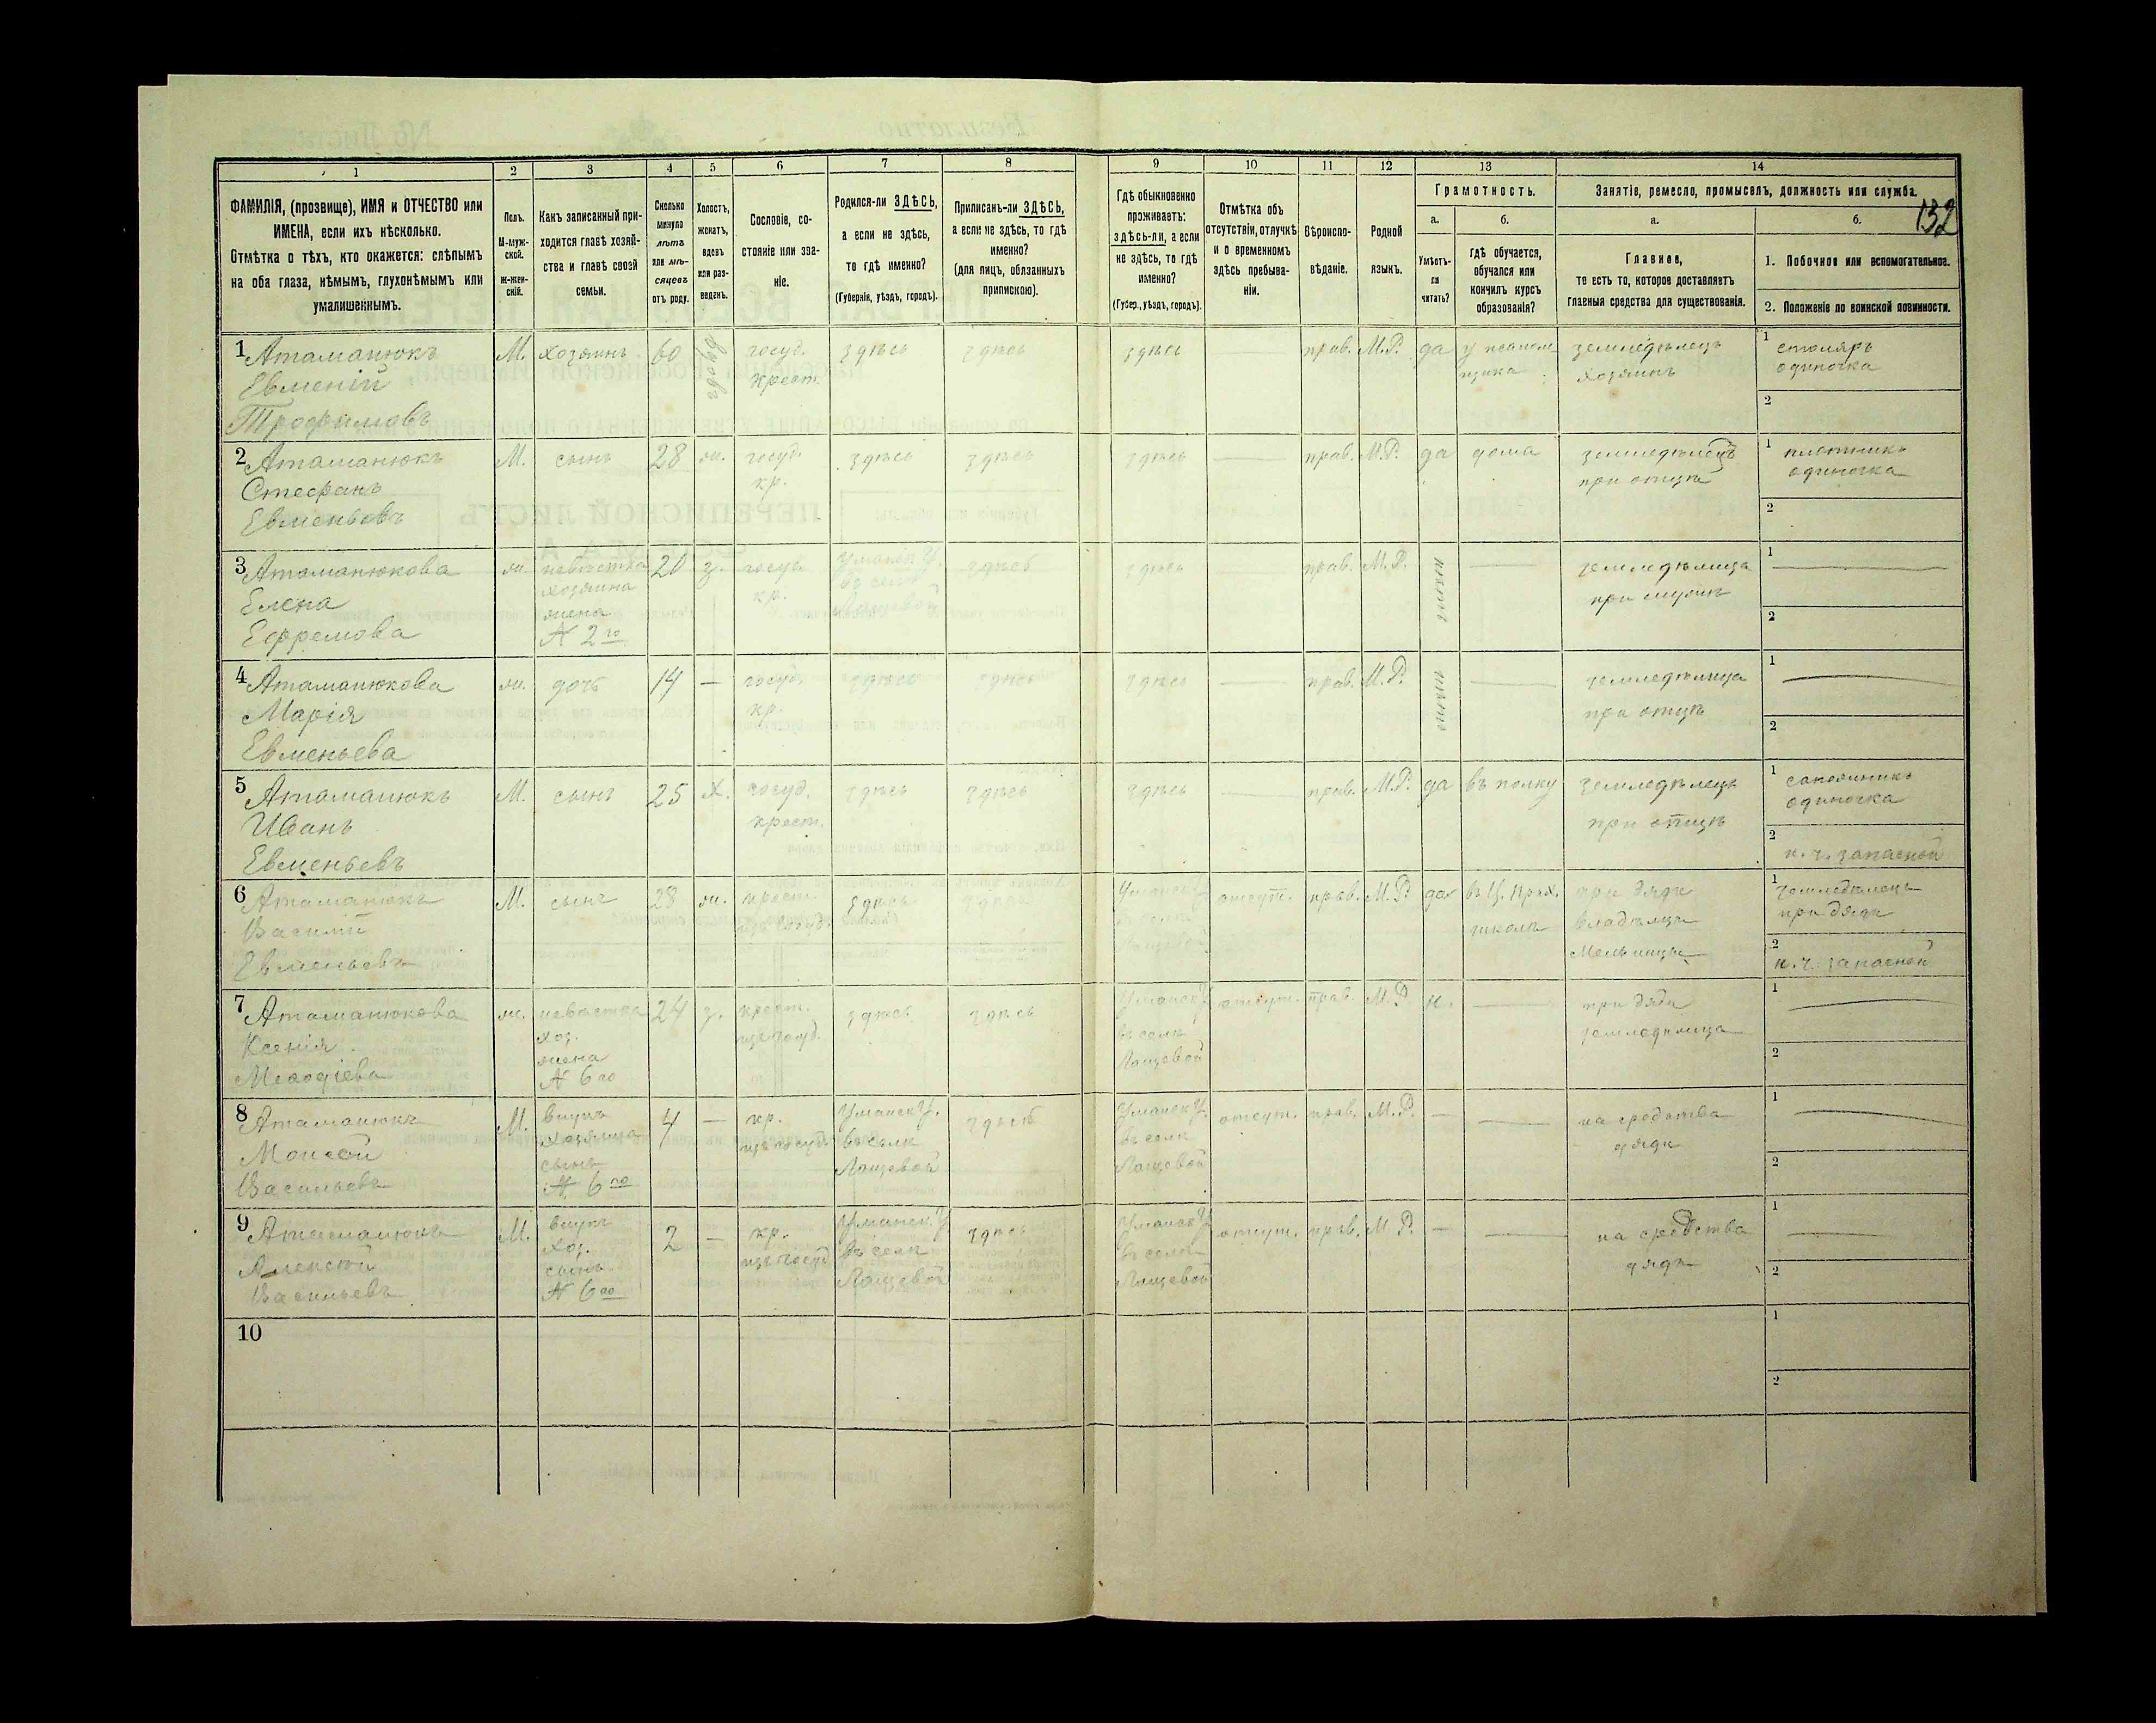 132
1 2 3 4 5 6 7 8 9 10 11 12 13 14
ФАМИЛІЯ, (прозвище), ИМЯ и ОТЧЕСТВО или
ИМЕНА, если ихъ нѣсколько.
Отмѣтка о тѣхъ, кто окажется: слѣпымъ
на оба глаза, нѣмымъ, глухонѣмымъ или
умалишеннымъ.
Полъ.
М-муж-
ской.
Ж-жен-
скій.
Какъ записанный при-
ходится главѣ хозяй-
ства и главѣ своей
семьи.
Сколько
минуло
лѣтъ
или мѣ-
сяцевъ
отъ роду.
Холостъ,
женатъ,
вдовъ
или раз-
веденъ.
Сословіе, со-
стояніе или зва-
ніе.
Родился-ли ЗДѢСЬ,
а если не здѣсь,
то гдѣ именно?
(Губернія, уѣздъ, городъ).
Приписанъ-ли ЗДѢСЬ,
а если не здѣсь, то гдѣ
именно?
(для лицъ, обязанныхъ
припискою).
Гдѣ обыкновенно
проживаетъ:
здѣсь-ли, а если
не здѣсь, то гдѣ
именно?
(Губер., уѣздъ, городъ).
Отмѣтка объ
отсутствіи, отлучкѣ
и о временномъ
здѣсь пребыва-
ніи.
Вѣроиспо-
вѣданіе.
Родной
языкъ.
Грамотность.
а.
Умѣетъ-
ли
читать?
б.
гдѣ обучается,
обучался или
кончилъ курсъ
образованія?
Занятіе, ремесло, промыселъ, должность или служба.
а.
Главное,
то есть то, которое доставляетъ
главныя средства для существованія.
б.
1. Побочное или вспомогательное.
2. Положеніе по воинской повинности.
1 Атаманюкъ
Евменій
Трофимовъ
М.
хозяинъ
60
вдовъ
госуд.
крест.
здѣсь
здѣсь
здѣсь
прав.
М.Р.
да
земледѣлецъ
хозяинъ
1 столяръ
одиночка
2
2 Атаманюкъ
Стефанъ
Евменьевъ
М.
сынъ
28
ж.
госуд.
кр.
здѣсь
здѣсь
здѣсь
—
прав.
М.Р.
да
дома
земледѣлецъ
при отцѣ
1 плотникъ
одиночка
2
3 Атаманюкова
Елена
Ефремова
ж.
невѣстка
хозяина
жена
№ 2го
20
з.
госуд.
кр.
Уманск. У.
въ селѣ
здѣсь
здѣсь
—
прав.
М.Р.
—
земледѣлица
при мужѣ
1 —
2
4 Атаманюкова
Марія
Евменьева
ж.
дочь
14
—
госуд.
кр.
здѣсь
здѣсь
здѣсь
—
прав.
М.Р.
—
земледѣлица
при отцѣ
1 —
2
5 Атаманюкъ
Иванъ
Евменьевъ
М.
сынъ
25
х.
госуд.
крест.
здѣсь
здѣсь
здѣсь
—
прав.
М.Р.
да
въ полку
земледѣлецъ
при отцѣ
1 сапожникъ
одиночка
2
н. ч. запасной
6 Атаманюкъ
Василій
Евменьевъ
М.
сынъ
28
ж.
крест.
изъ госуд.
здѣсь
здѣсь
Уманск. У.
въ селѣ
Лащевой
отсут.
прав.
М.Р.
да
въ Ц. Прих.
школѣ
при дядѣ
владѣлцѣ
мельницы
1 земледѣлецъ
при дядѣ
2
н. ч. запасной
7 Атаманюкова
Ксенія
Мефодіева
ж.
невѣстка
хоз.
жена
№ 6го
24
з.
крест.
изъ госуд.
здѣсь
здѣсь
Уманск. У.
въ селѣ
Лащевой
отсут.
прав.
М.Р.
н.
—
при дядѣ
земледѣлица
1 —
2
8 Атаманюкъ
Моисей
Васильевъ
М.
внукъ
хозяина
сынъ
№ 6го
4
—
кр.
изъ госуд.
Уманск. У.
въ селѣ
Лащевой
здѣсь
Уманск. У.
въ селѣ
Лащевой
отсут.
прав.
М.Р.
—
—
на средства
дяди
1 —
2
9 Атаманюкъ
Алексѣй
Васильевъ
М.
внукъ
хоз.
сынъ
№ 6го
2
—
кр.
изъ госуд.
Уманск. У.
въ селѣ
Лащевой
здѣсь
Уманск. У.
въ селѣ
Лащевой
отсут.
прав.
М.Р.
—
—
на средства
дяди
1 —
2
10
1
2